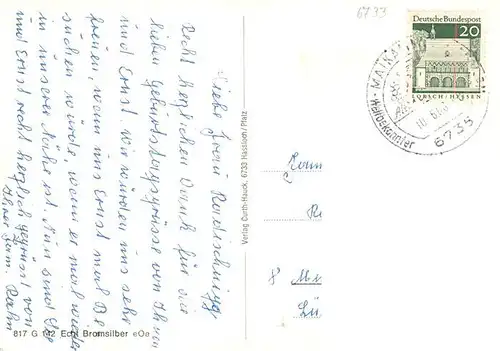 6733
Deutsche Bundespost
20
LORSCH / HESSEN
MAIKAMMER
6735
Liebe Frau Radischnigg
Recht herzlichen Dank für die
lieben Geburtstagsgrüsse von Ihnen
und Ernst. Wir würden uns sehr
freuen, wenn uns Ernst mal Be
suchen würde, wenn er mal wieder
in unserer Nähe ist. Nun sind Sie
und Ernst recht herzlich gegrüsst von
Ihrer Fam. Rahm
Verlag Curth-Hauck, 6733 Hassloch/Pfalz
817 G 142 Echt Bromsilber «Oe
8